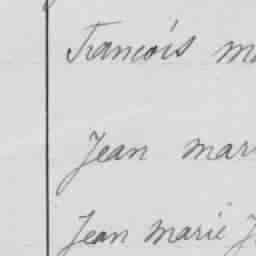 Francois ma
Jean mari
Jean Marie J